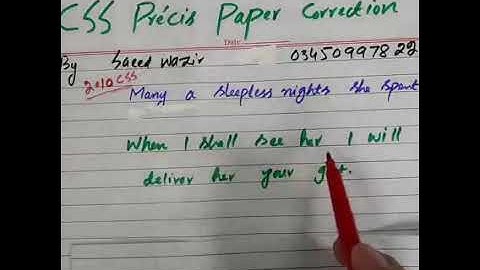 CSS Précis Paper Correction
Date:
By Saeed Wazir 03450997822
2010 CSS
Many a sleepless nights she spent
When I shall see her I will
deliver her your gift.